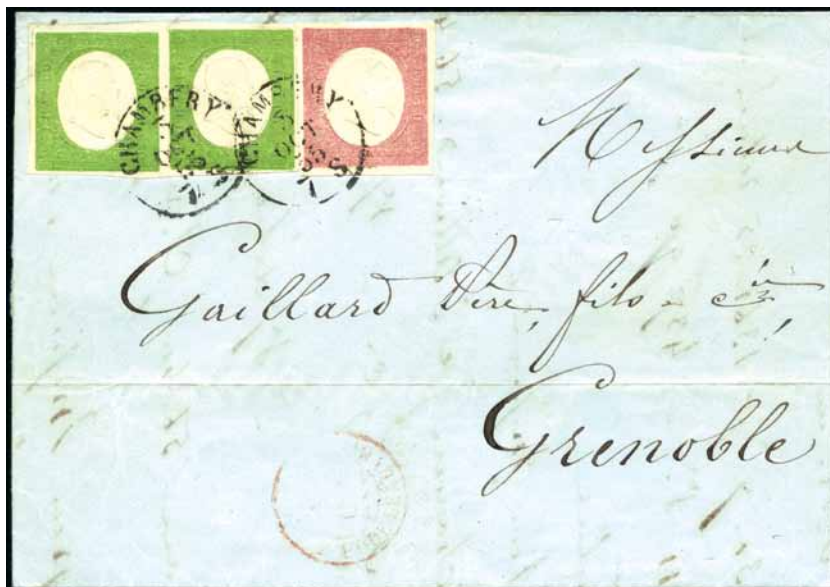 CHAMBERY
OCT
S
CHAM Y
OCT
S
Messieurs
Gaillard Père, fils & cie
Grenoble